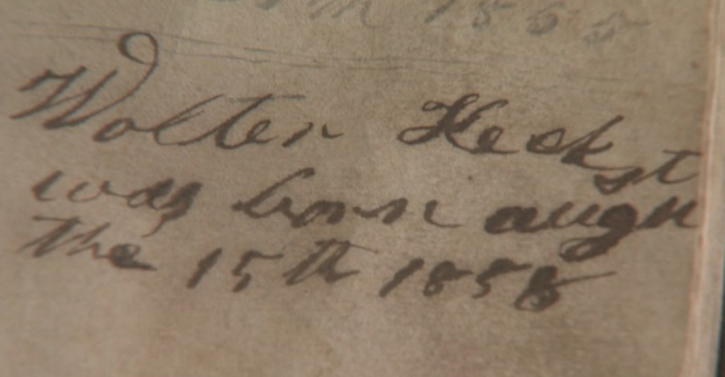 1858
Wolter Heck
was born augu st
the 15th 1858